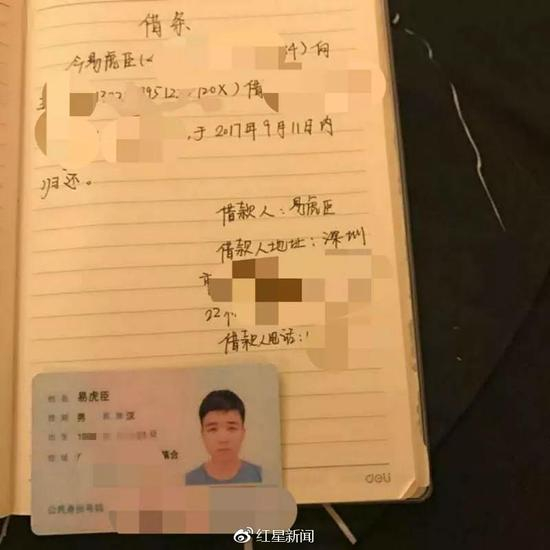 借条
今易虎臣(
)向
39512 120X)借
,于2017年9月11日内
归还。
借款人:易虎臣
借款人地址:深圳
市
22个
借款人电话:1
姓名 易虎臣
性别 男 民族 汉
出生 19
住址
公民身份号码
deli
红星新闻